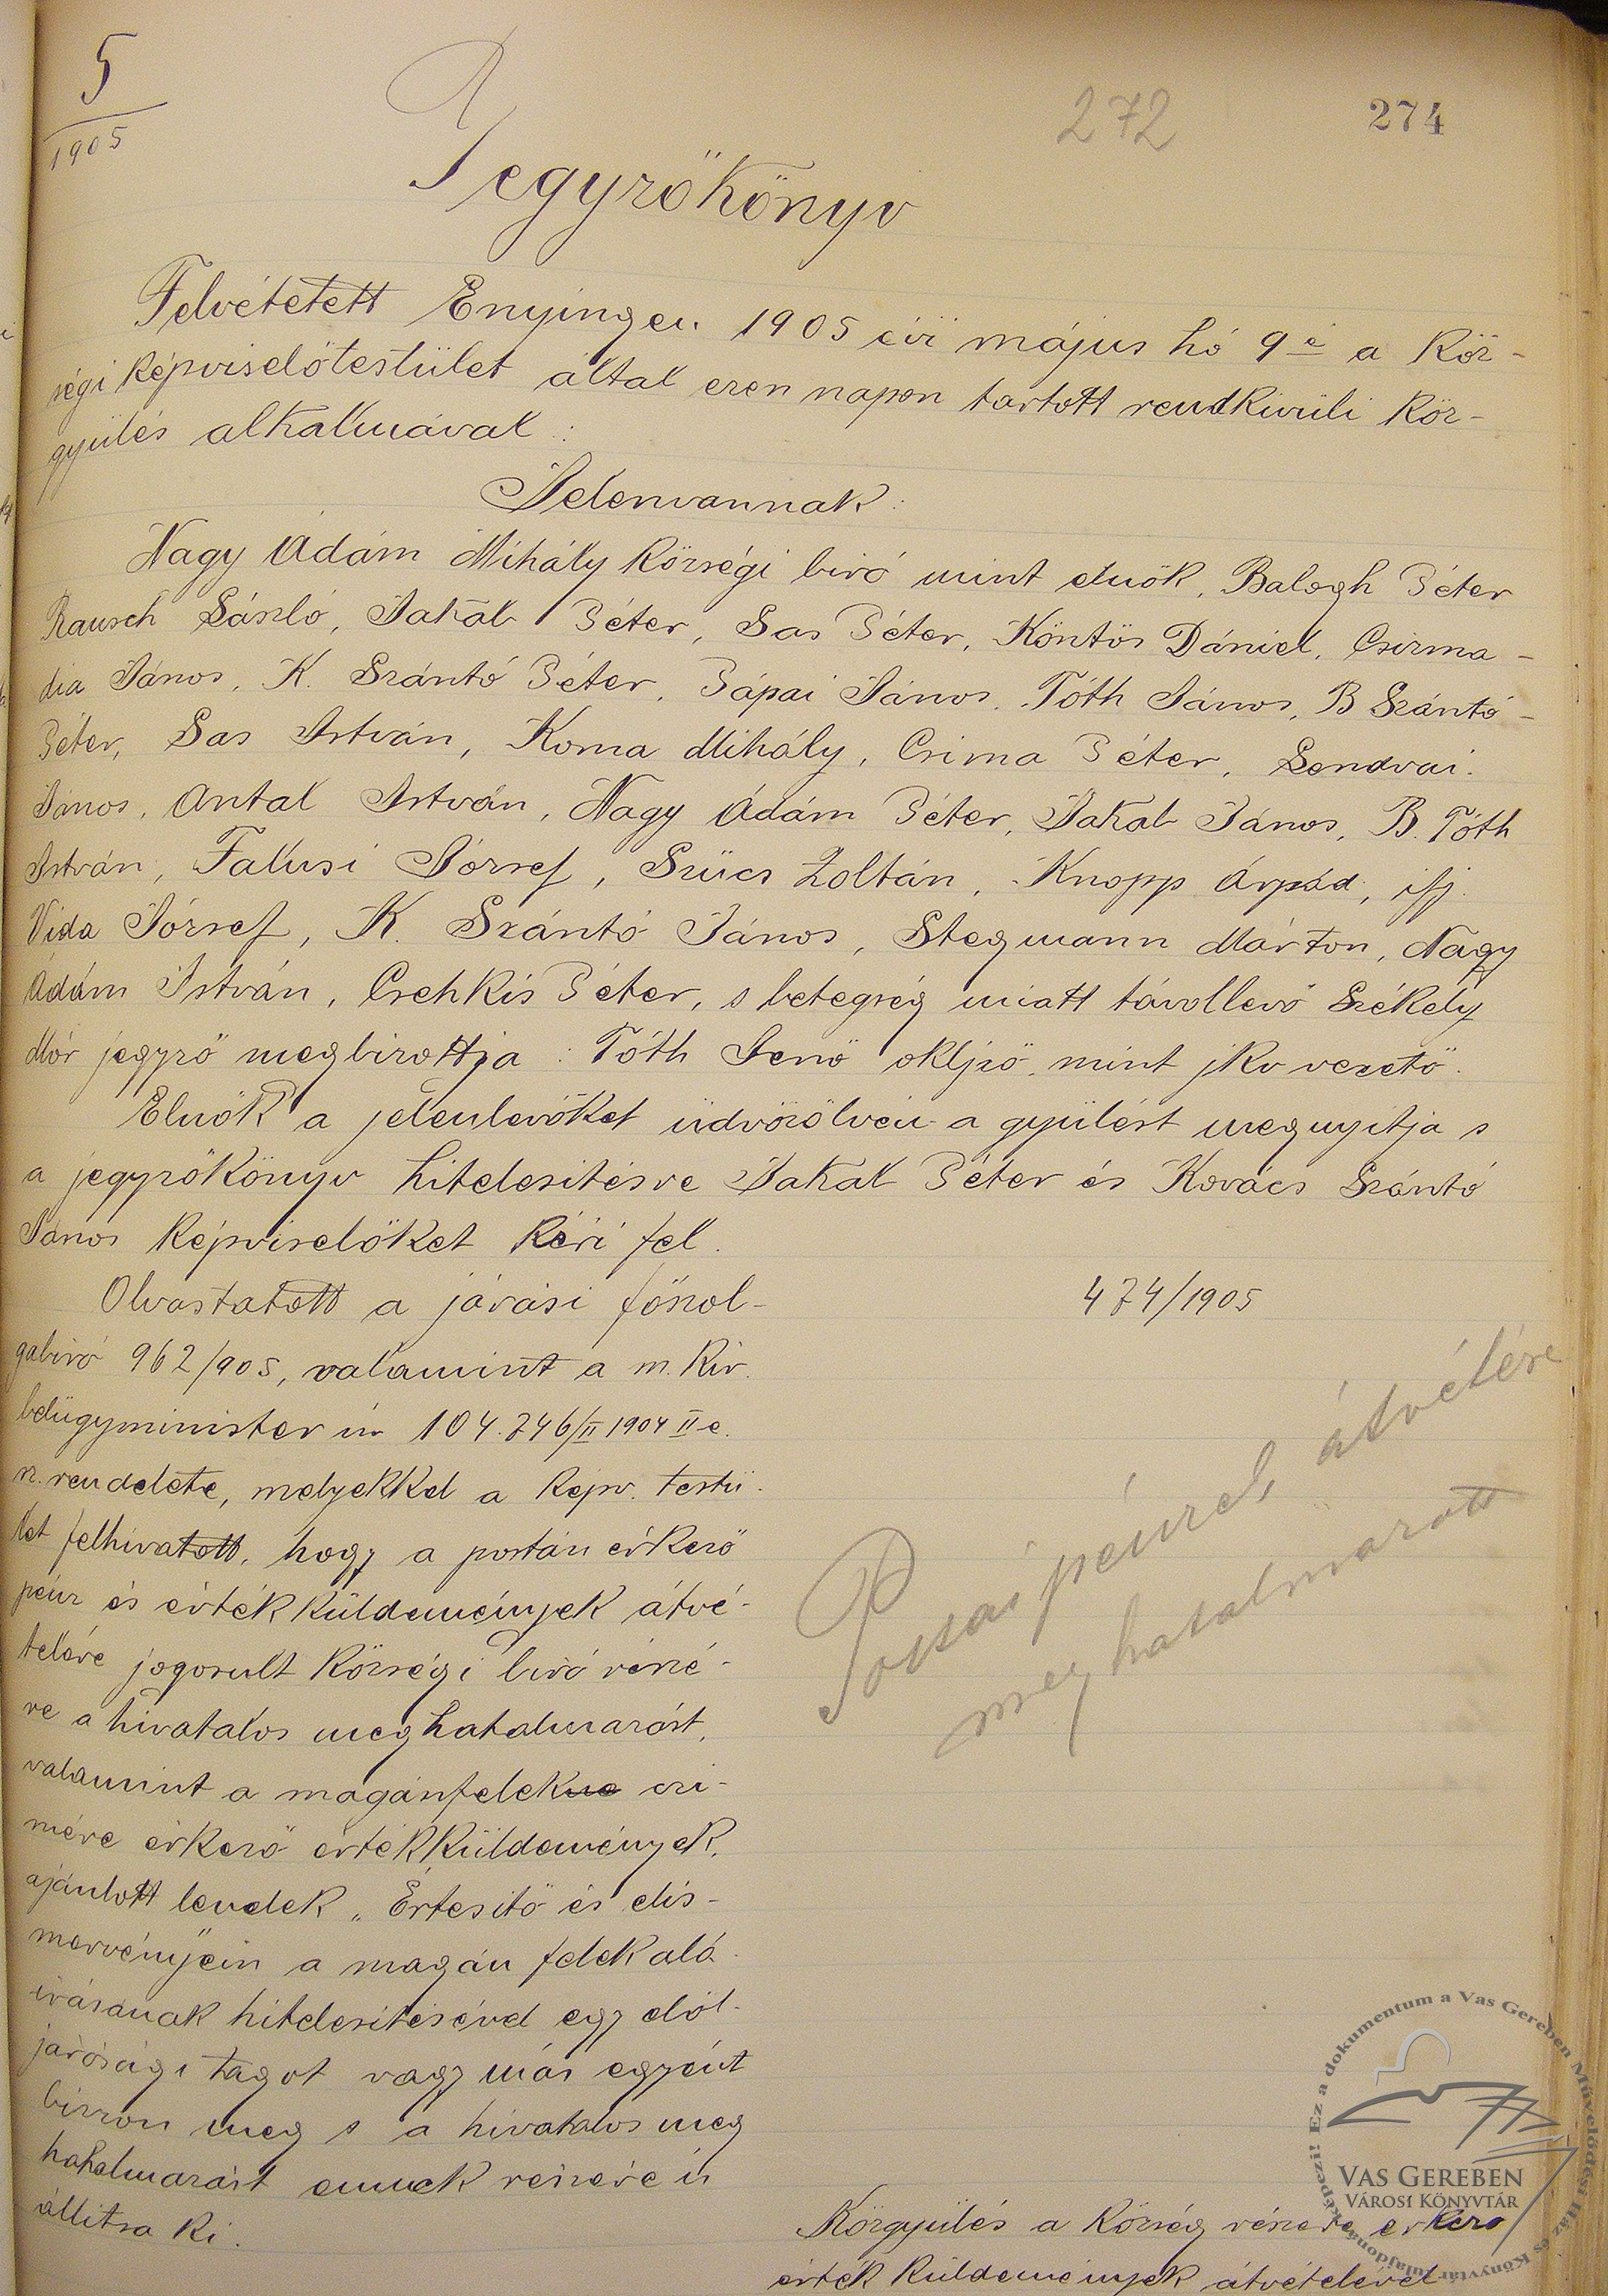 5
1905
272
274
Jegyzőkönyv
Felvétetett Enyingen 1905 évi május hó 9 é a Köz-
ségi képviselőtestület által ezen napon tartott rendkivüli köz-
gyülés alkalmával:
Jelenvannak:
Nagy Ádám Mihály községi biró mint elnök, Balogh Péter
Rausch László, Jakab Péter, Sas Péter, Köntös Dániel, Csizma-
dia János, K. Szántó Péter, Pápai János, Tóth János, B Szántó-
Péter, Sas István, Koma Mihály, Csima Péter, Lendvai
János, Antal István, Nagy Ádám Péter, Jakab János, B. Tóth
István, Falusi József, Szücs Zoltán, Knopp Árpád, ifj.
Vida József, K. Szántó János, Stegmann Márton, Nagy
Ádám István, Csehkis Péter, s betegség miatt távollevő Székely
Mór jegyző megbizottja: Tóth Jenő okljző mint jkv vezető.
Elnök a jelenlevőket üdvözölvén a gyülést megnyitja s
a jegyzőkönyv hitelesitésre Jakab Péter és Kovács Szántó
János képviselőket kéri fel.
Olvastatott a járási főszol-
gabiró 962/905, valamint a m. kir.
belügyminister úr 104.746/II 1904 II-e.
sz. rendelete, melyekkel a képv. testü-
let felhivatott, hogy a postán érkező
pénz és érték küldemények átvé-
telére jogosult községi biró részé-
re a hivatalos meghatalmazást,
valamint a magánfelek czi-
mére érkező értékküldemények,
ajánlott levelek „Értesitő és elis-
mervényein a magán felek alá
irásának hitelesitésével egy elöl-
járósági tagot vagy más egyént
bizzon meg s a hivatalos meg
hatalmazást ennek részére is
állitsa ki.
474/1905
Postai pénzek átvételére
meghatalmazott
Közgyülés a község részére érkező
érték küldemények átvételével
Ez a dokumentum a Vas Gereben Művelődési Ház és Könyvtár tulajdonát képezi!
VAS GEREBEN
VÁROSI KÖNYVTÁR